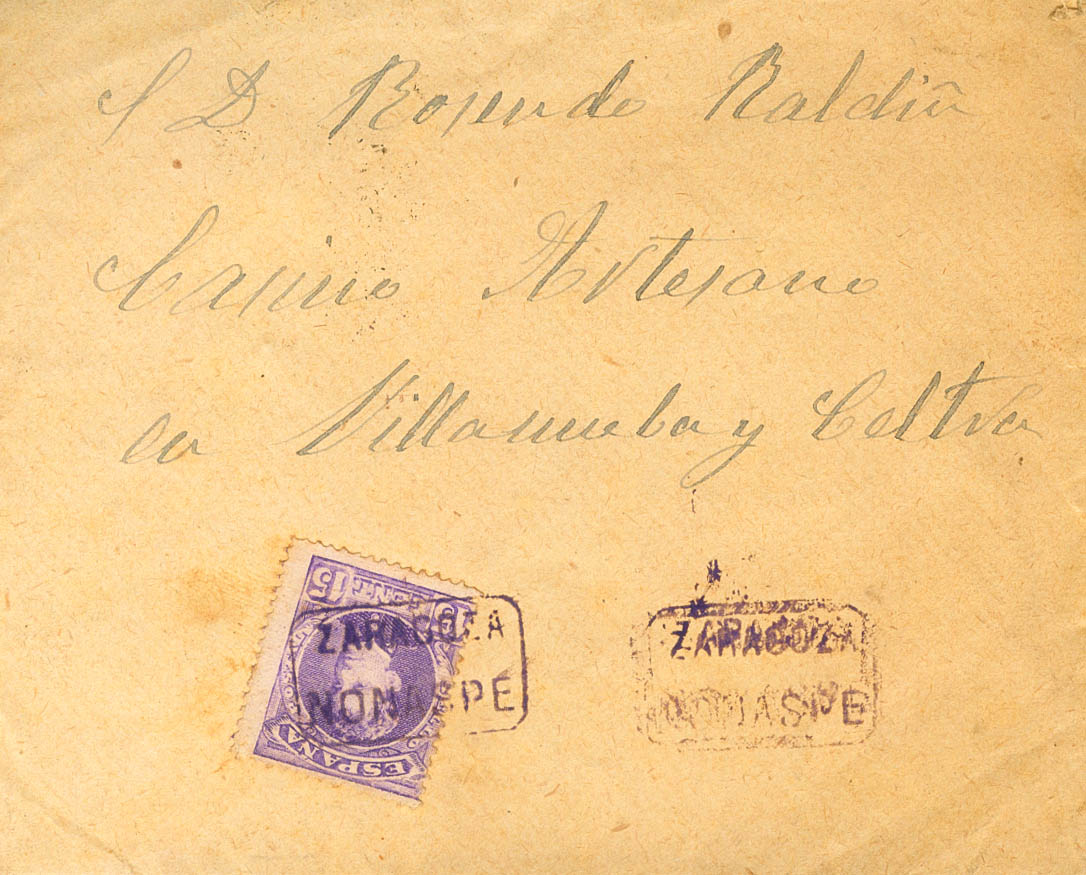 S D Rosendo Raldiu
Casino Artesano
en Villanueba y Celtru
15 CENT.
ESPAÑA
ZARAGOZA
NONASPE
ZARAGOZA
NONASPE